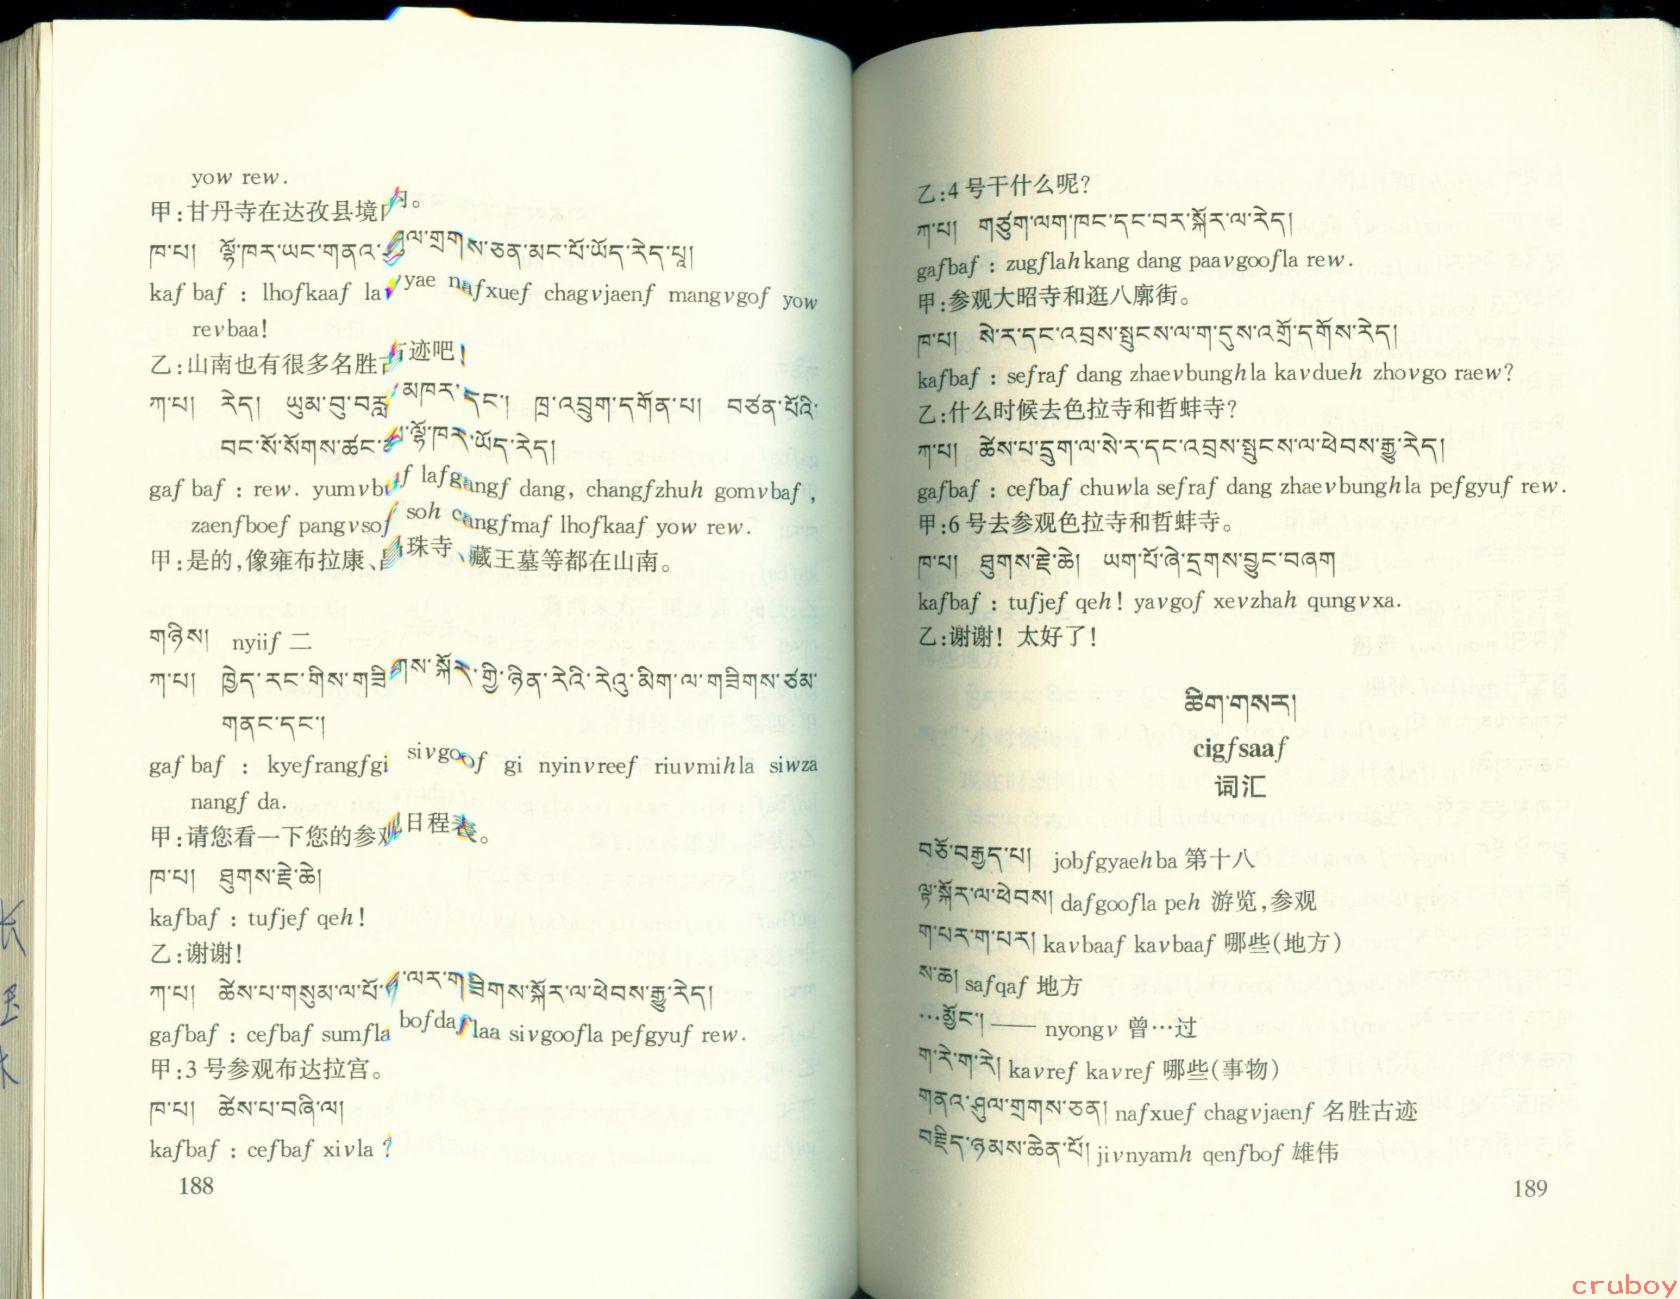 yow rew.
甲:甘丹寺在达孜县境内。
ཁ་པ། ལྷོ་ཁར་ཡང་གནའ་ཤུལ་གྲགས་ཅན་མང་པོ་ཡོད་རེད་པཱ།
kaf baf : lhofkaaf la yae nafxuef chagvjaenf mangvgof yow
revbaa!
乙:山南也有很多名胜古迹吧!
ཀ་པ། རེད། ཡུམ་བུ་བརླ་མཁར་དང་། ཁྲ་འབྲུག་དགོན་པ། བཙན་པོའི་
བང་སོ་སོགས་ཚང་མ་ལྷོ་ཁར་ཡོད་རེད།
gaf baf : rew. yumvbuf lafgangf dang, changfzhuh gomvbaf,
zaenfboef pangvsof soh cangfmaf lhofkaaf yow rew.
甲:是的,像雍布拉康、昌珠寺、藏王墓等都在山南。
གཉིས། nyiif 二
ཀ་པ། ཁྱེད་རང་གིས་གཟིགས་སྐོར་གྱི་ཉིན་རེའི་རེའུ་མིག་ལ་གཟིགས་ཙམ་
གནང་དང་།
gaf baf : kyefrangfgi sivgoof gi nyinvreef riuvmihla siwza
nangf da.
甲:请您看一下您的参观日程表。
ཁ་པ། ཐུགས་རྗེ་ཆེ།
kafbaf : tufjef qeh!
乙:谢谢!
ཀ་པ། ཚེས་པ་གསུམ་ལ་པོ་ཏཱ་ལར་གཟིགས་སྐོར་ལ་ཕེབས་རྒྱུ་རེད།
gafbaf : cefbaf sumfla bofdaflaa sivgoofla pefgyuf rew.
甲:3号参观布达拉宫。
ཁ་པ། ཚེས་པ་བཞི་ལ།
kafbaf : cefbaf xivla ?
188
乙:4号干什么呢?
ཀ་པ། གཙུག་ལག་ཁང་དང་བར་སྐོར་ལ་རེད།
gafbaf : zugflahkang dang paavgoofla rew.
甲:参观大昭寺和逛八廓街。
ཁ་པ། སེ་ར་དང་འབྲས་སྤུངས་ལ་ག་དུས་འགྲོ་དགོས་རེད།
kafbaf : sefraf dang zhaevbunghla kavdueh zhovgo raew?
乙:什么时候去色拉寺和哲蚌寺?
ཀ་པ། ཚེས་པ་དྲུག་ལ་སེ་ར་དང་འབྲས་སྤུངས་ལ་ཕེབས་རྒྱུ་རེད།
gafbaf : cefbaf chuwla sefraf dang zhaevbunghla pefgyuf rew.
甲:6号去参观色拉寺和哲蚌寺。
ཁ་པ། ཐུགས་རྗེ་ཆེ། ཡག་པོ་ཞེ་དྲགས་བྱུང་བཞག
kafbaf : tufjef qeh! yavgof xevzhah qungvxa.
乙:谢谢! 太好了!
ཚིག་གསར།
cigfsaaf
词汇
བཅོ་བརྒྱད་པ། jobfgyaehba 第十八
ལྟ་སྐོར་ལ་ཕེབས། dafgoofla peh 游览,参观
ག་པར་ག་པར། kavbaaf kavbaaf 哪些(地方)
ས་ཆ། safqaf 地方
…མྱོང་། —— nyongv 曾…过
ག་རེ་ག་རེ། kavref kavref 哪些(事物)
གནའ་ཤུལ་གྲགས་ཅན། nafxuef chagvjaenf 名胜古迹
བརྗིད་ཉམས་ཆེན་པོ། jivnyamh qenfbof 雄伟
189
cruboy